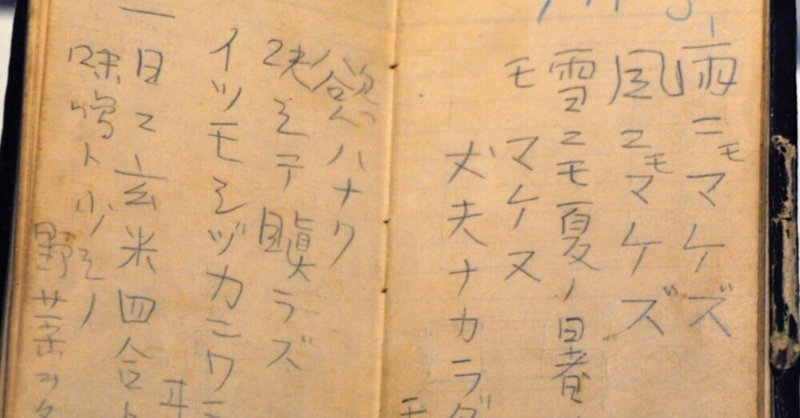 雨ニモマケズ
風ニモマケズ
雪ニモ夏ノ暑
モマケヌ
丈夫ナカラダ
モ
慾ハナク
決シテ瞋ラズ
イツモシヅカニワ
ヰ
一日ニ玄米四合ト
味噌ト少シノ
野菜